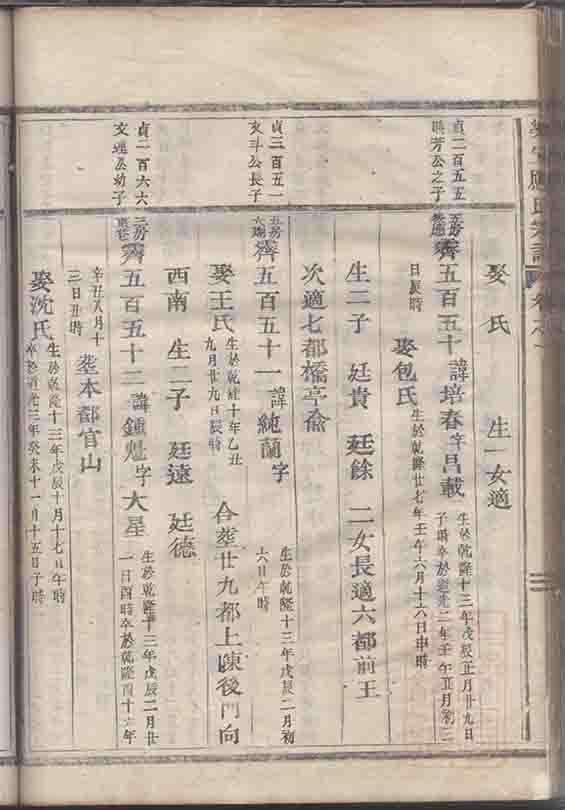 應氏宗譜
娶 氏 生一女適
貞二百五五
芳公之子
五房
齊五百五十 諱培春字昌載 生於乾隆十三年戊辰正月廿九日
子時卒於道光二年壬午五月初三
日辰時 娶包氏 生於乾隆廿七年壬午六月十六日申時
生二子 廷貴 廷餘 二女長適六都前王
次適七都橋亭兪
貞二百五一
文斗公長子
五房
齊五百五十一 諱純蘭字 生於乾隆十三年戊辰二月初
六日午時
娶王氏 生於乾隆十年乙丑
九月廿九日辰時 合塟廿九都上陳後門向
西南 生二子 廷遠 廷德
貞一百六六
文進公幼子
三房
齊五百五十二 諱鍾魁字大星 生於乾隆十三年戊辰二月廿
一日酉時卒於乾隆四十六年
辛丑八月十
三日丑時 塟本都官山
娶沈氏 生於乾隆十三年戊辰十月十七日午時
卒於道光三年癸未十一月十五日子時